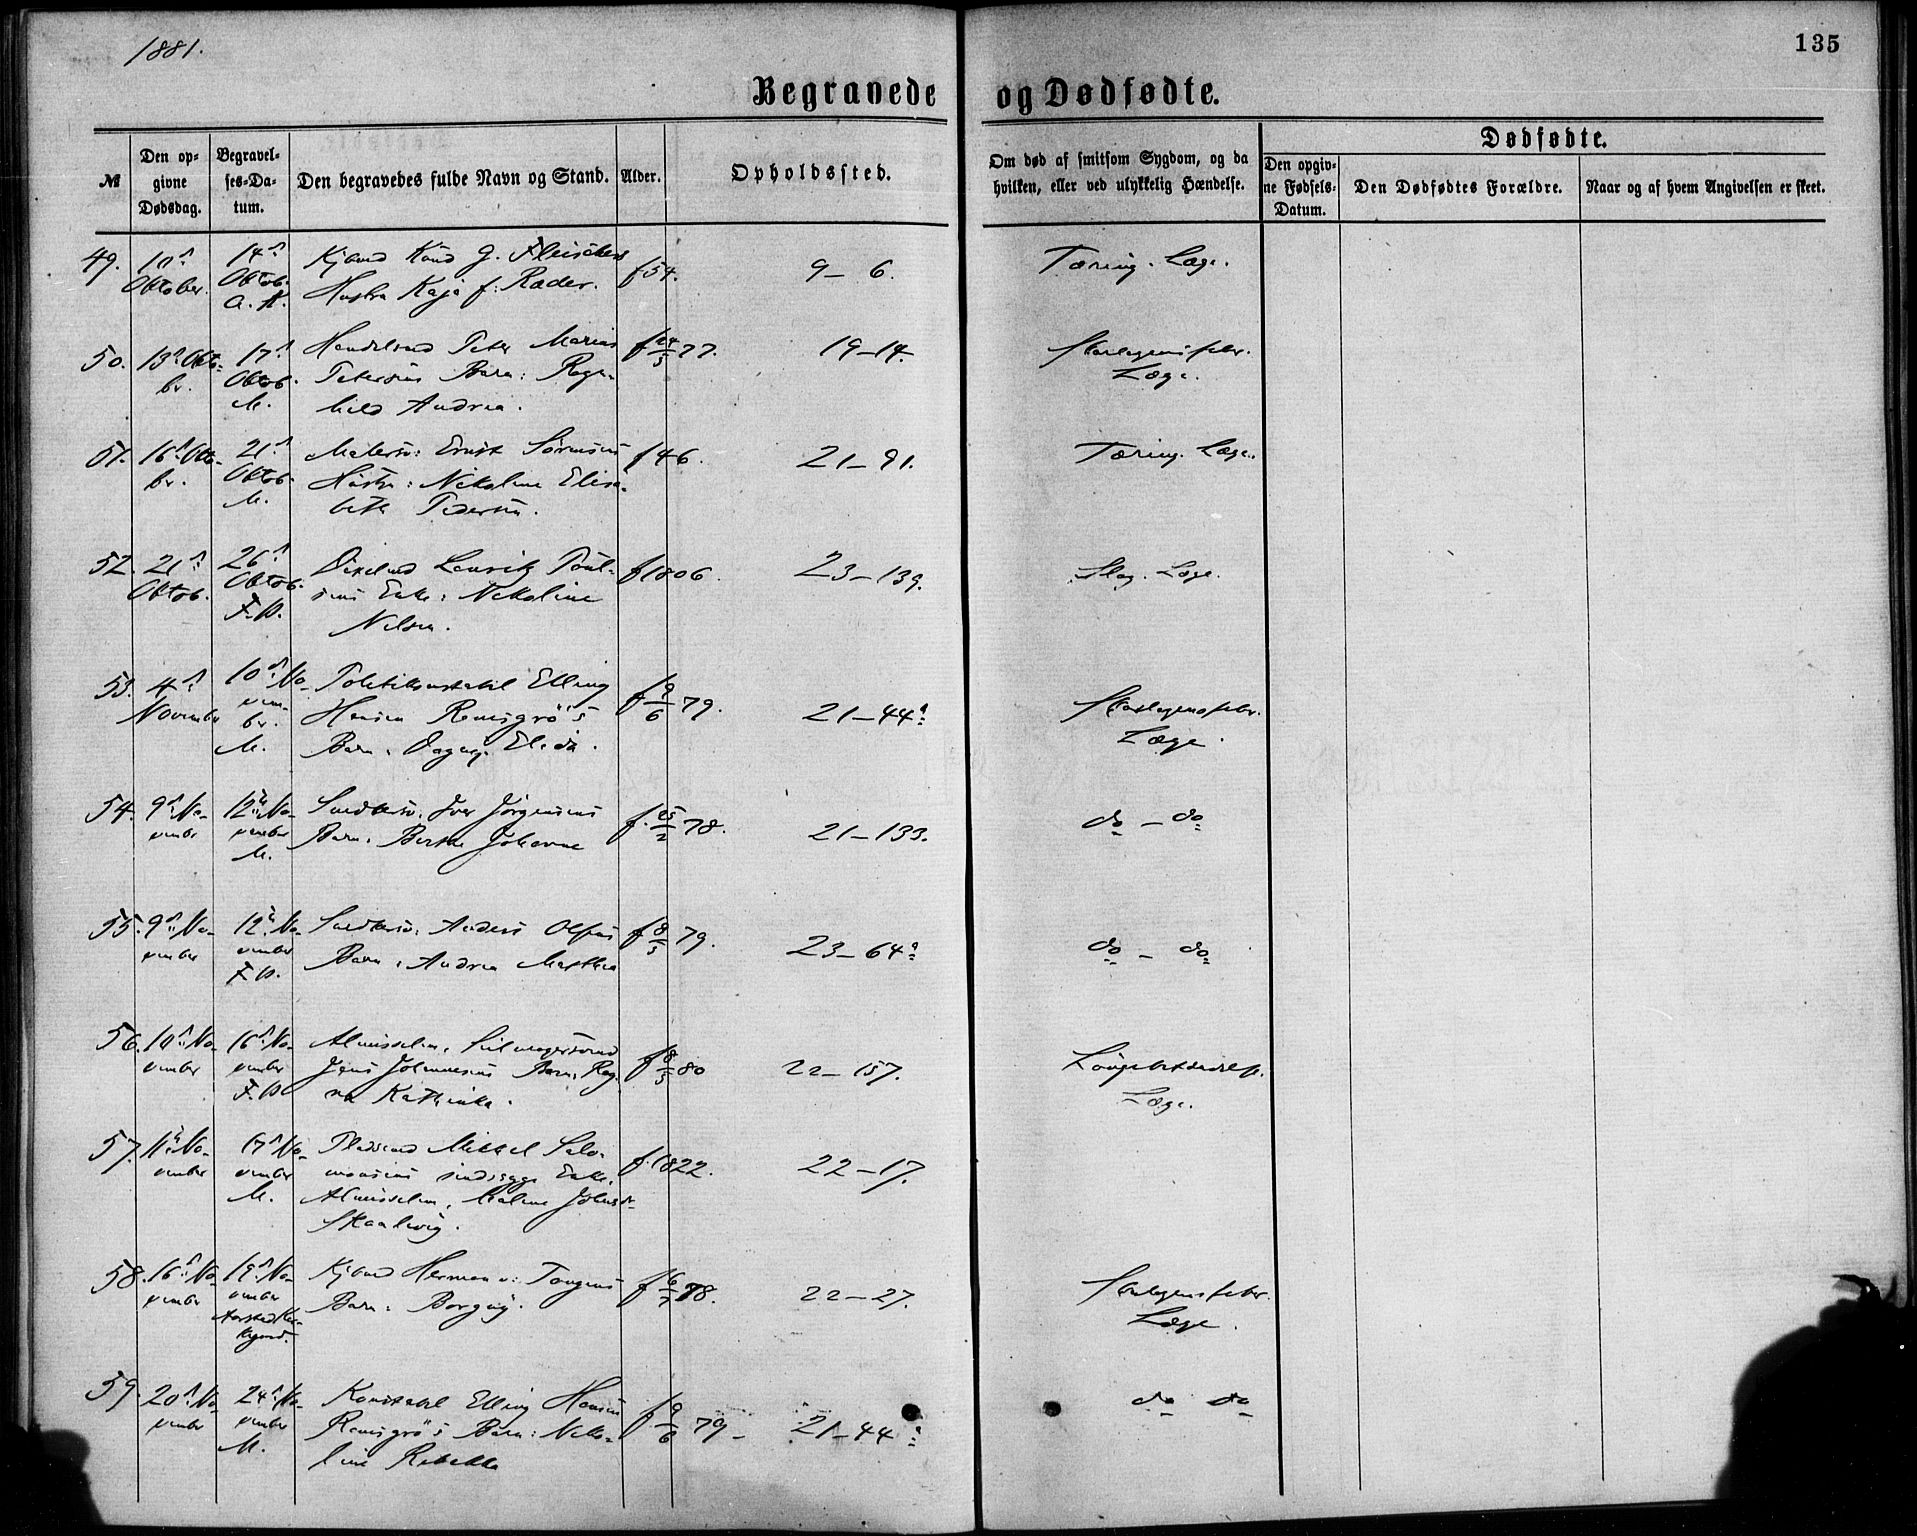 1881.
135
Begravede og Dødfødte.
№
Den op-
givne
Dødsdag.
Begravel-
ses-Da-
tum.
Den begravedes fulde Navn og Stand.
Alder.
Opholdssted.
Om død af smitsom Sygdom, og da
hvilken, eller ved ulykkelig Hændelse.
Dødfødte.
Den opgiv-
ne Fødsels-
Datum.
Den Dødfødtes Forældre.
Naar og af hvem Angivelsen er skeet.
49.
October.
14
Oktob.
A. K.
Kjbmd Knud G. Fleischers
Hustru Kaja f: Ræder.
f 54.
9 – 6.
Tæring. Læge.
50.
13 Okto-
br.
17
Oktob.
M.
Handelsmd Peter Marius
Petersens Barn: Ragn-
hild Andrea.
f 24/5 77.
19–14.
Skarlagensfebr.
Læge.
51.
16 Okto-
br.
21
Oktob.
M.
Malersv: Ernst Sørensens
Hustru: Nikoline Elisa-
beth Pedersen.
f 46.
21–91.
Tæring. Læge.
52.
21
Oktob.
26
Oktob.
F. P.
Lauritz Poul-
sens Enke: Nikoline
Nilsen.
f 1806.
23–139.
Slag. Læge.
53.
4
Novembr
10 No-
vem-
br.
M.
Politikonstabel Elling
Hansen Remsgrø's
Barn: Dagny Elida.
f 9/6 79.
21–44a
Skarlagensfebr.
Læge.
54.
9 No-
vember
12 No-
vember
M.
Snedkersv. Iver Jørgensens
Barn. Berthe Johanne
f. 25/2 78.
21–133.
do – do
55.
9 No-
vember
12 No-
vember
F. P.
Snedkersv: Anders Olsens
Barn: Andrea Marthea
f 8/5 79.
23–64a
do – do
56.
10 No-
vember
16 No-
vember
F. P.
Almisselem, Seilmagersvend
Jens Johannesens Barn: Rag-
na Kathinka.
f 8/5 80
22–157.
Lungebetændelse.
Læge.
57.
11 No-
vember
17 No-
vember
M.
Pladsmd Mikkel Salo-
monsens sindssyge Enke,
Almisselem, Malene
Skaalevig.
f. 1822.
22–17.
58.
16 No-
vember
19 No-
vember
Aarstad Kir-
kegrd.
Kjbmd Herman v: Tangens
Barn: Borgny.
f 6/7 78.
22–27.
Skarlagensfebr.
Læge.
59.
20 No-
vember
24 No-
vember
M.
Konstabel Elling Hansen
Remsgrø's Barn: Niko-
line Rebekka
f 9/6 79 –
21–44a
do do